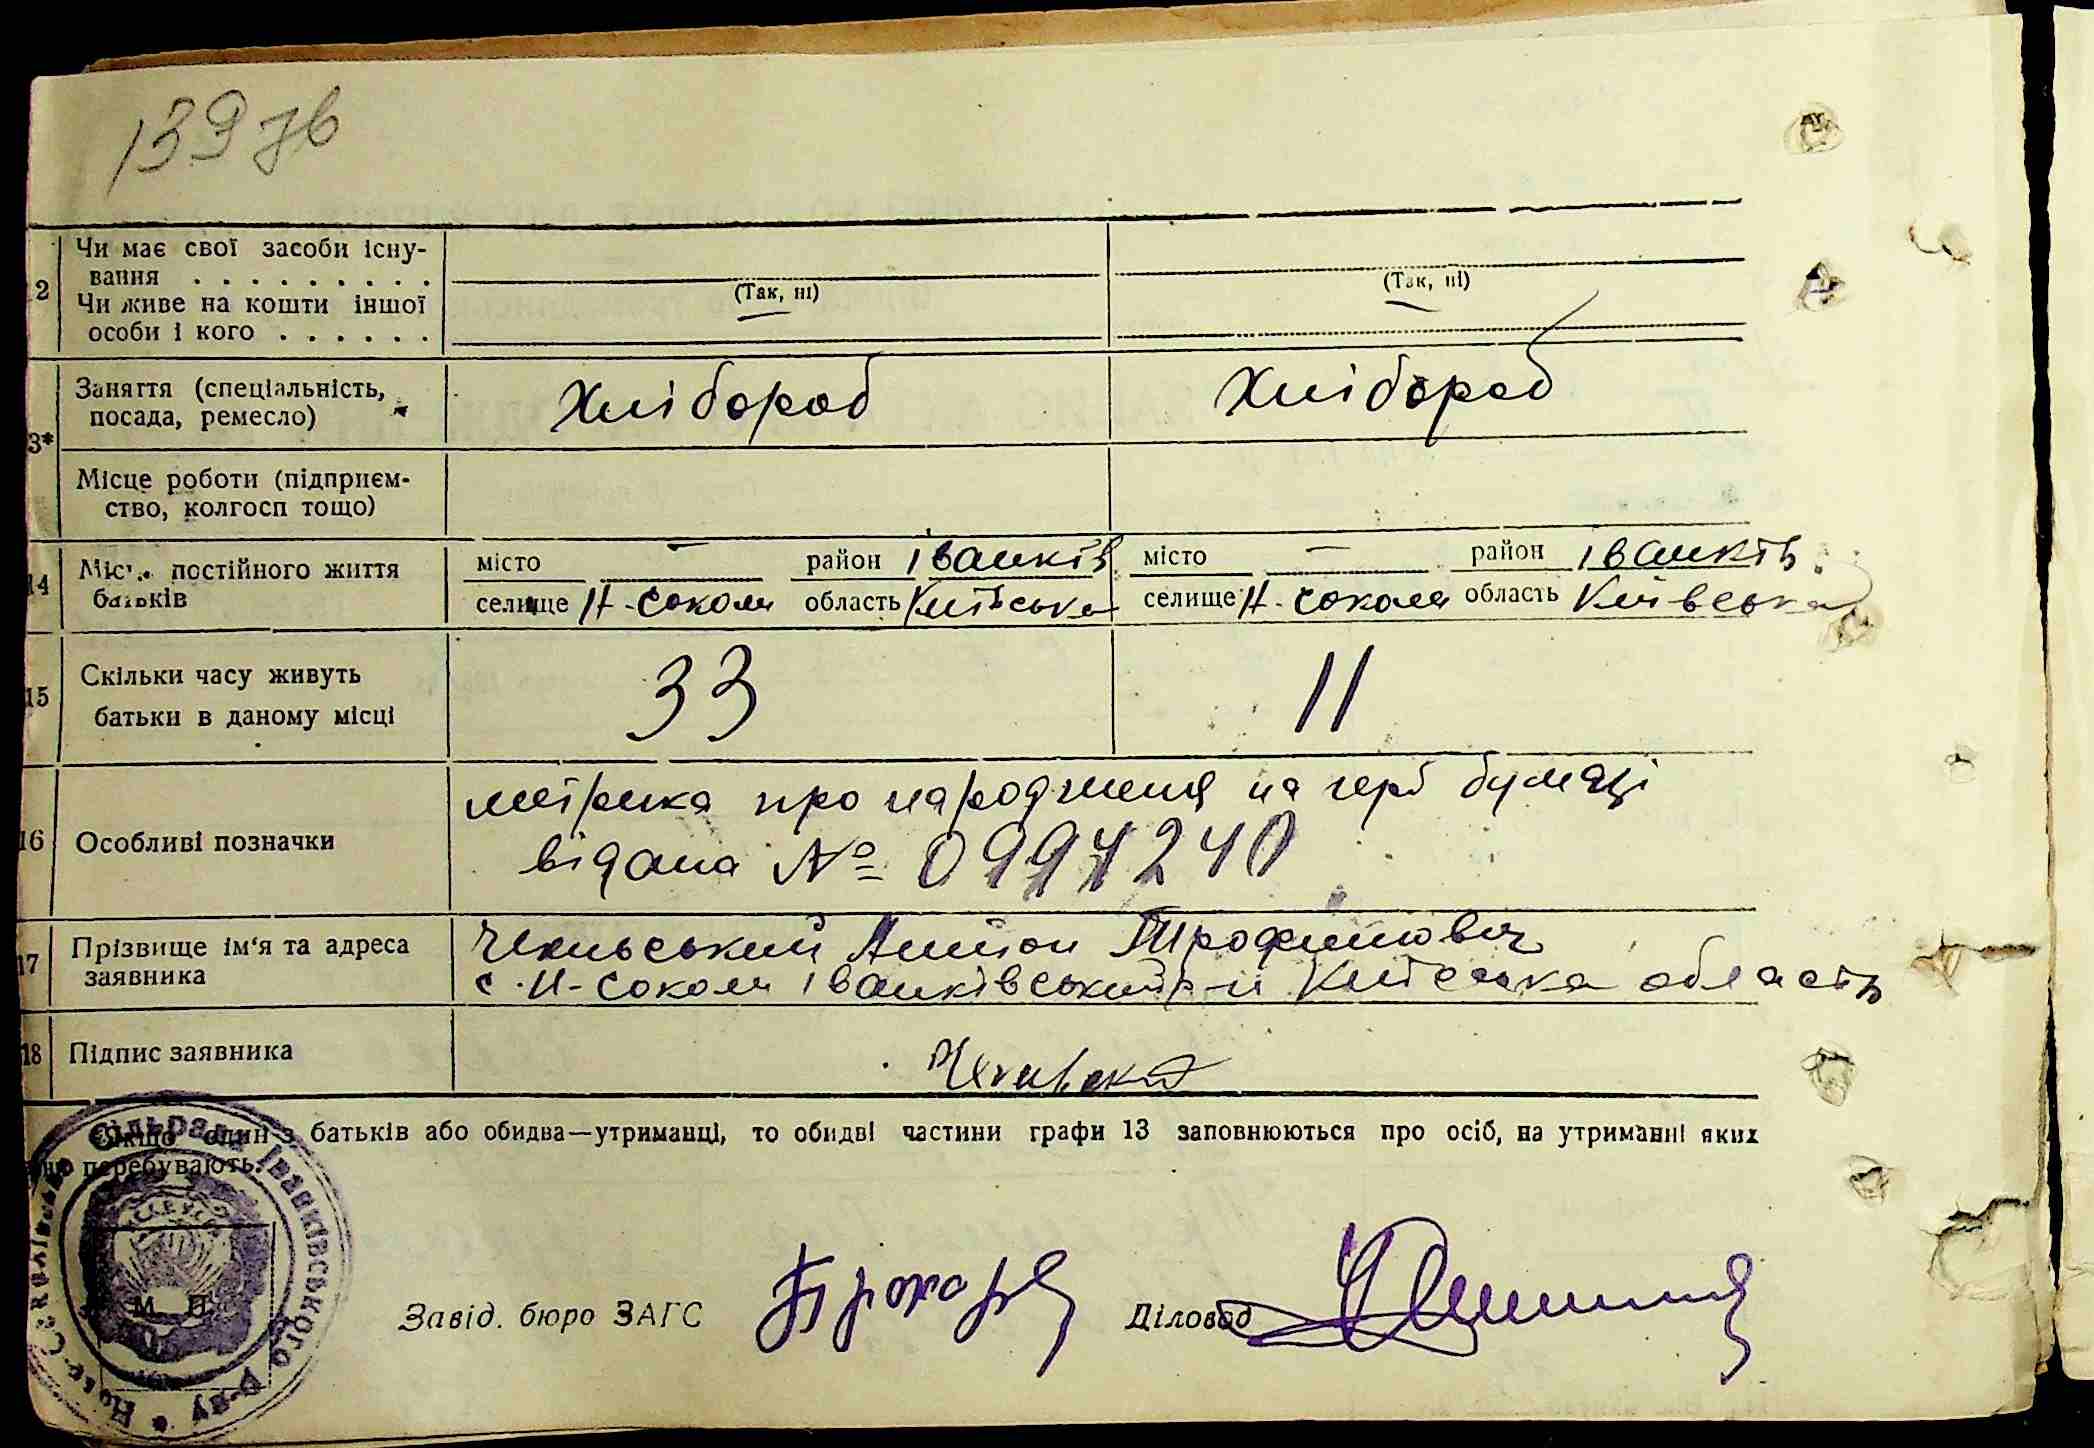 139 зв
2 Чи має свої засоби існу-
вання . . . . . . . . .
(Так, ні) (Так, ні)
Чи живе на кошти іншої
особи і кого . . . . . .
3* Заняття (спеціальність,
посада, ремесло) Хлібороб Хлібороб
Місце роботи (підприєм-
ство, колгосп тощо)
14 Місце постійного життя
батьків
місто — район Іванків місто — район Іванків
селище Н-Соколи область Київська селище Н-Соколи область Київська
15 Скільки часу живуть
батьки в даному місці 33 11
16 Особливі позначки
метрика про народження на герб бумазі
відана № 0994240
17 Прізвище ім'я та адреса
заявника
Антон Трофимович
с. Н-Соколи Іванківський р-н Київська область
18 Підпис заявника
Якщо один з батьків або обидва—утриманці, то обидві частини графи 13 заповнюються про осіб, на утриманні яких
перебувають.
Сільрада Іванківського Р-ну
М. П.
Завід. бюро ЗАГС Діловод